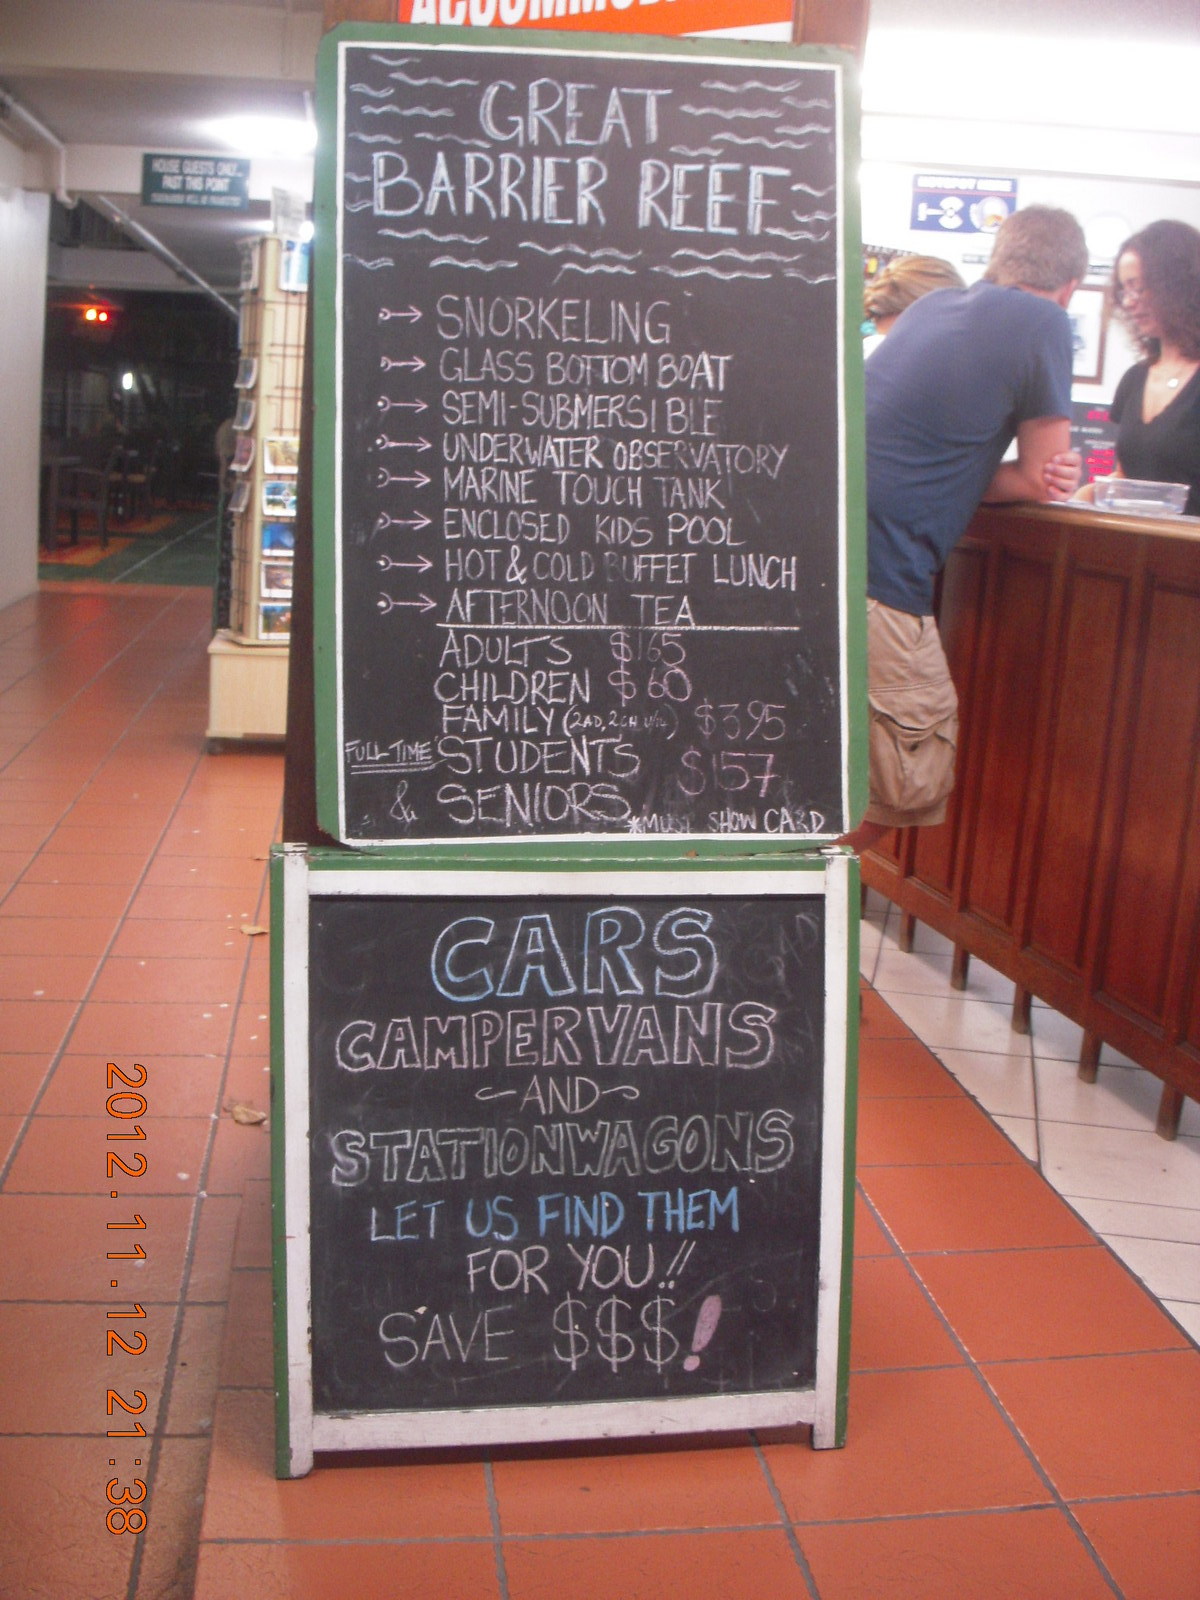 GREAT
BARRIER REEF
SNORKELING
GLASS BOTTOM BOAT
SEMI-SUBMERSIBLE
UNDERWATER OBSERVATORY
MARINE TOUCH TANK
ENCLOSED KIDS POOL
HOT & COLD BUFFET LUNCH
AFTERNOON TEA
ADULTS $165
CHILDREN $60
FAMILY (2AD, 2CH $395
FULL-TIME STUDENTS $157
& SENIORS *MUST SHOW CARD
CARS
CAMPERVANS
AND
STATIONWAGONS
LET US FIND THEM
FOR YOU!!
SAVE $$$!
HOUSE GUESTS ONLY...
PAST THIS POINT
2012.11.12 21:38